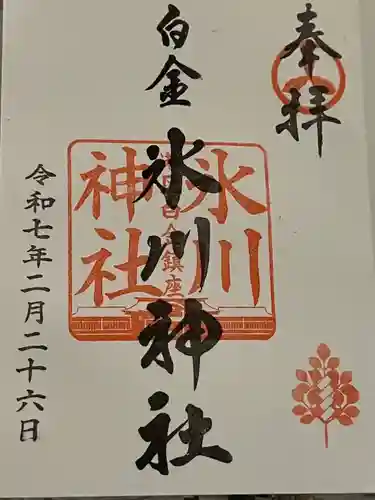 奉拝
白金
氷川神社
氷川
神社
白金鎮座
令和七年二月二十六日